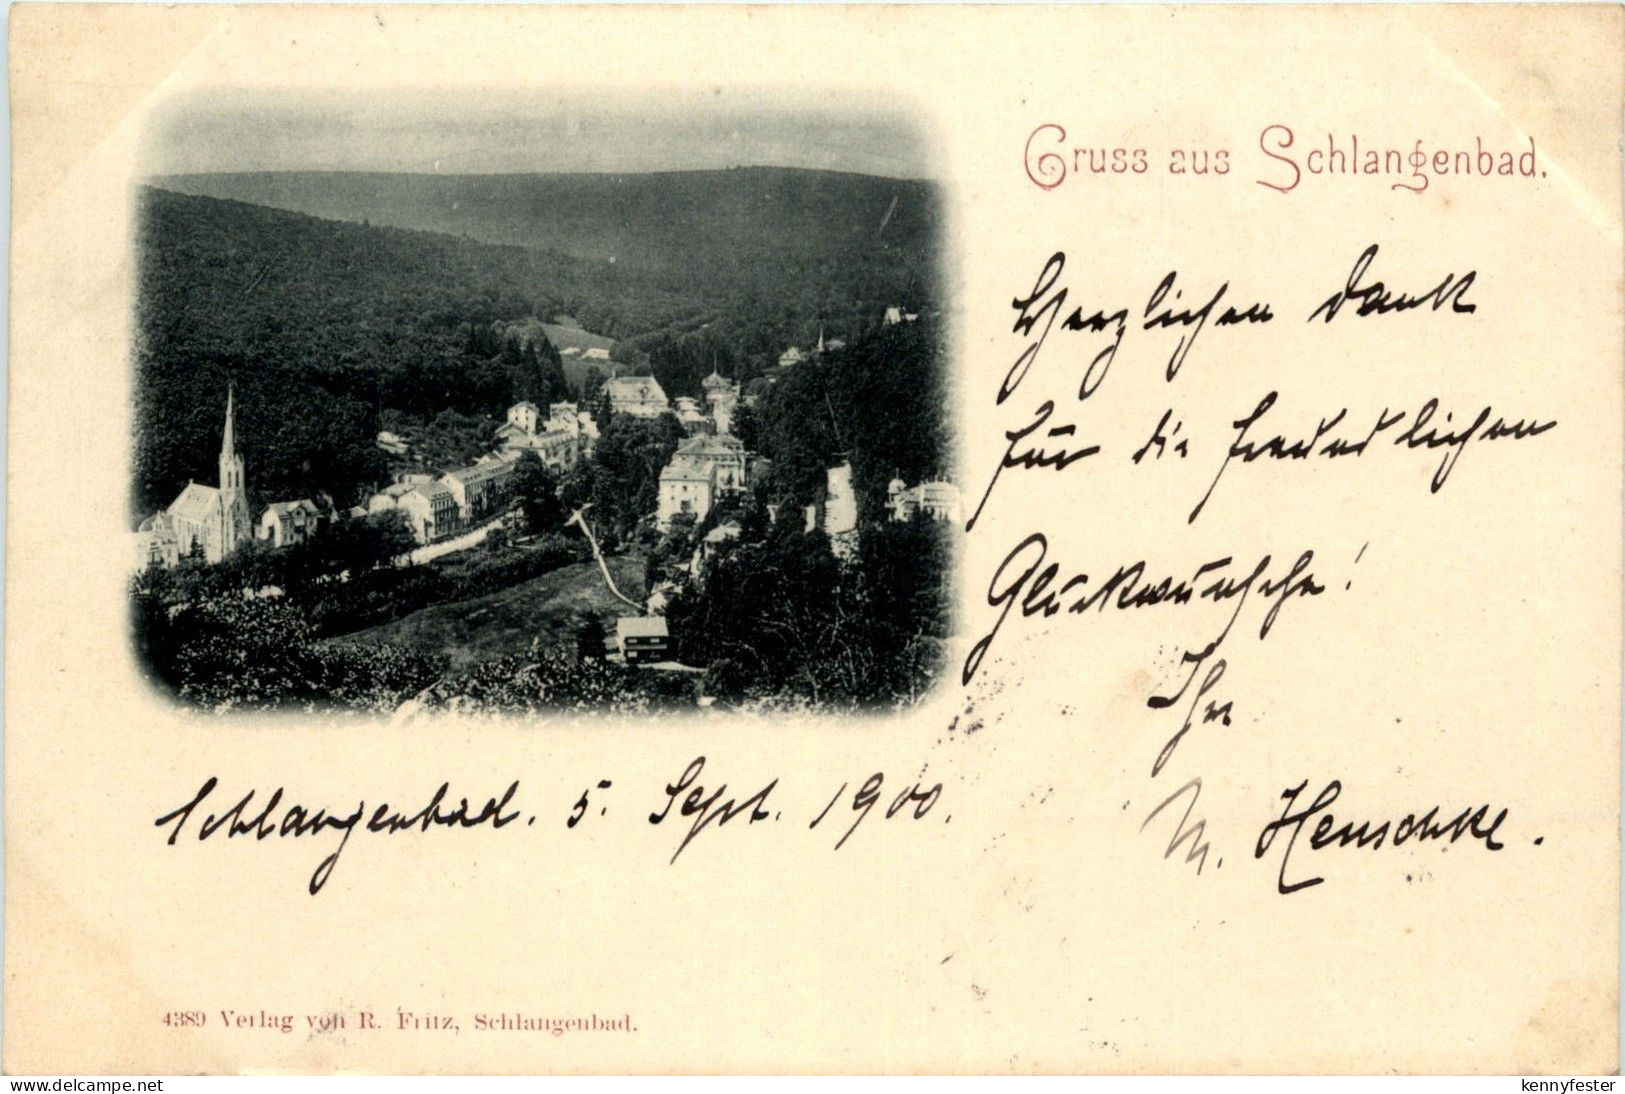 Gruss aus Schlangenbad.
Herzlichen Dank
für die freundlichen
Glückwünsche!
Ihr
M. Henschke.
Schlangenbad. 5. Sept. 1900.
4389 Verlag von R. Fritz, Schlangenbad.
delcampe.net
kennyfester